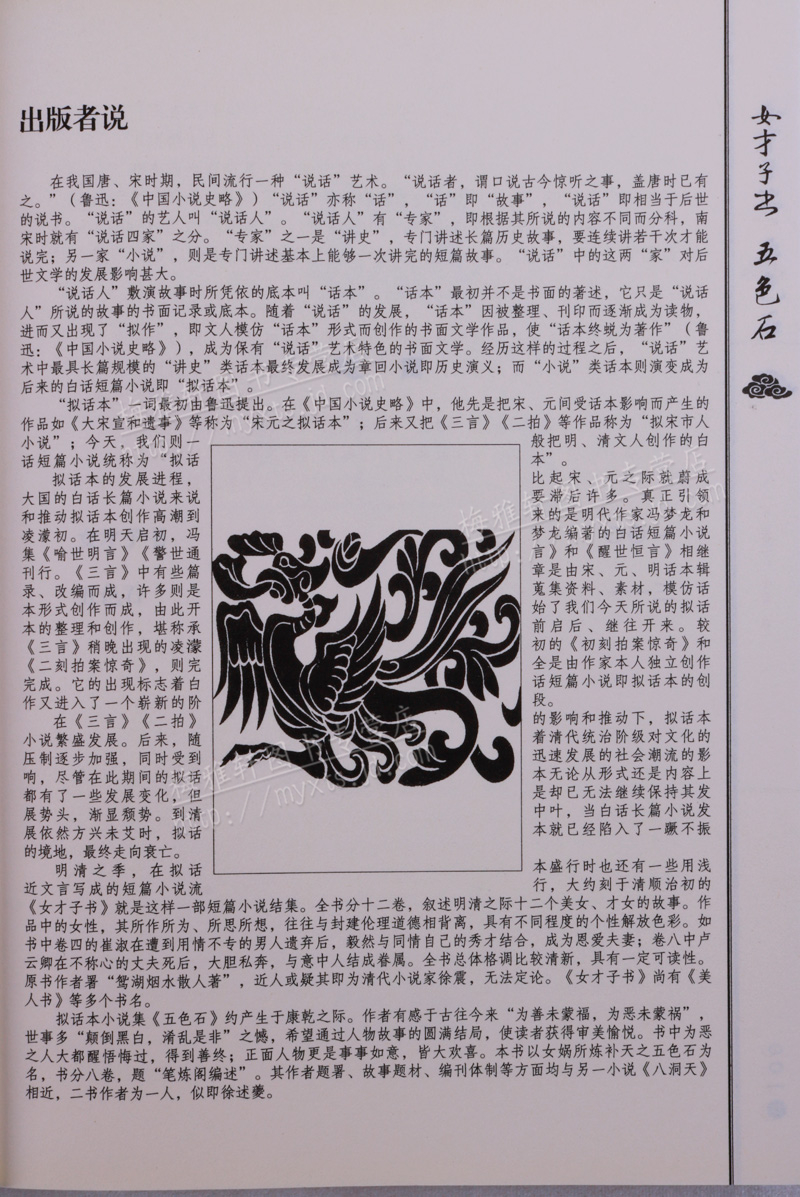 出版者说
在我国唐、宋时期，民间流行一种“说话”艺术。“说话者，谓口说古今惊听之事，盖唐时已有
之。”（鲁迅：《中国小说史略》）“说话”亦称“话”，“话”即“故事”，“说话”即相当于后世
的说书。“说话”的艺人叫“说话人”。“说话人”有“专家”，即根据其所说的内容不同而分科，南
宋时就有“说话四家”之分。“专家”之一是“讲史”，专门讲述长篇历史故事，要连续讲若干次才能
说完；另一家“小说”，则是专门讲述基本上能够一次讲完的短篇故事。“说话”中的这两“家”对后
世文学的发展影响甚大。
“说话人”敷演故事时所凭依的底本叫“话本”。“话本”最初并不是书面的著述，它只是“说话
人”所说的故事的书面记录或底本。随着“说话”的发展，“话本”因被整理、刊印而逐渐成为读物，
进而又出现了“拟作”，即文人模仿“话本”形式而创作的书面文学作品，使“话本终蜕为著作”（鲁
迅：《中国小说史略》），成为保有“说话”艺术特色的书面文学。经历这样的过程之后，“说话”艺
术中最具长篇规模的“讲史”类话本最终发展成为章回小说即历史演义；而“小说”类话本则演变成为
后来的白话短篇小说即“拟话本”。
“拟话本”一词最初由鲁迅提出。在《中国小说史略》中，他先是把宋、元间受话本影响而产生的
作品如《大宋宣和遗事》等称为“宋元之拟话本”；后来又把《三言》《二拍》等作品称为“拟宋市人
小说”；今天，我们则一般把明、清文人创作的白
话短篇小说统称为“拟话本”。
拟话本的发展进程，比起宋、元之际就蔚成
大国的白话长篇小说来说要滞后许多。真正引领
和推动拟话本创作高潮到来的是明代作家冯梦龙和
凌濛初。在明天启初，冯梦龙编著的白话短篇小说
集《喻世明言》《警世通言》和《醒世恒言》相继
刊行。《三言》中有些篇章是由宋、元、明话本辑
录、改编而成，许多则是蒐集资料、素材，模仿话
本形式创作而成，由此开始了我们今天所说的拟话
本的整理和创作，堪称承前启后、继往开来。较
《三言》稍晚出现的凌濛初的《初刻拍案惊奇》和
《二刻拍案惊奇》，则完全是由作家本人独立创作
完成。它的出现标志着白话短篇小说即拟话本的创
作又进入了一个崭新的阶段。
在《三言》《二拍》的影响和推动下，拟话本
小说繁盛发展。后来，随着清代统治阶级对文化的
压制逐步加强，同时受到迅速发展的社会潮流的影
响，尽管在此期间的拟话本无论从形式还是内容上
都有了一些发展变化，但是却已无法继续保持其发
展势头，渐显颓势。到清中叶，当白话长篇小说发
展依然方兴未艾时，拟话本就已经陷入了一蹶不振
的境地，最终走向衰亡。
明清之季，在拟话本盛行时也还有一些用浅
近文言写成的短篇小说流行，大约刻于清顺治初的
《女才子书》就是这样一部短篇小说结集。全书分十二卷，叙述明清之际十二个美女、才女的故事。作
品中的女性，其所作所为、所思所想，往往与封建伦理道德相背离，具有不同程度的个性解放色彩。如
书中卷四的崔淑在遭到用情不专的男人遗弃后，毅然与同情自己的秀才结合，成为恩爱夫妻；卷八中卢
云卿在不称心的丈夫死后，大胆私奔，与意中人结成眷属。全书总体格调比较清新，具有一定可读性。
原书作者署“鸳湖烟水散人著”，近人或疑其即为清代小说家徐震，无法定论。《女才子书》尚有《美
人书》等多个书名。
拟话本小说集《五色石》约产生于康乾之际。作者有感于古往今来“为善未蒙福，为恶未蒙祸”，
世事多“颠倒黑白，淆乱是非”之憾，希望通过人物故事的圆满结局，使读者获得审美愉悦。书中为恶
之人大都醒悟悔过，得到善终；正面人物更是事事如意，皆大欢喜。本书以女娲所炼补天之五色石为
名，书分八卷，题“笔炼阁编述”。其作者题署、故事题材、编刊体制等方面均与另一小说《八洞天》
相近，二书作者为一人，似即徐述夔。
女才子书 五色石